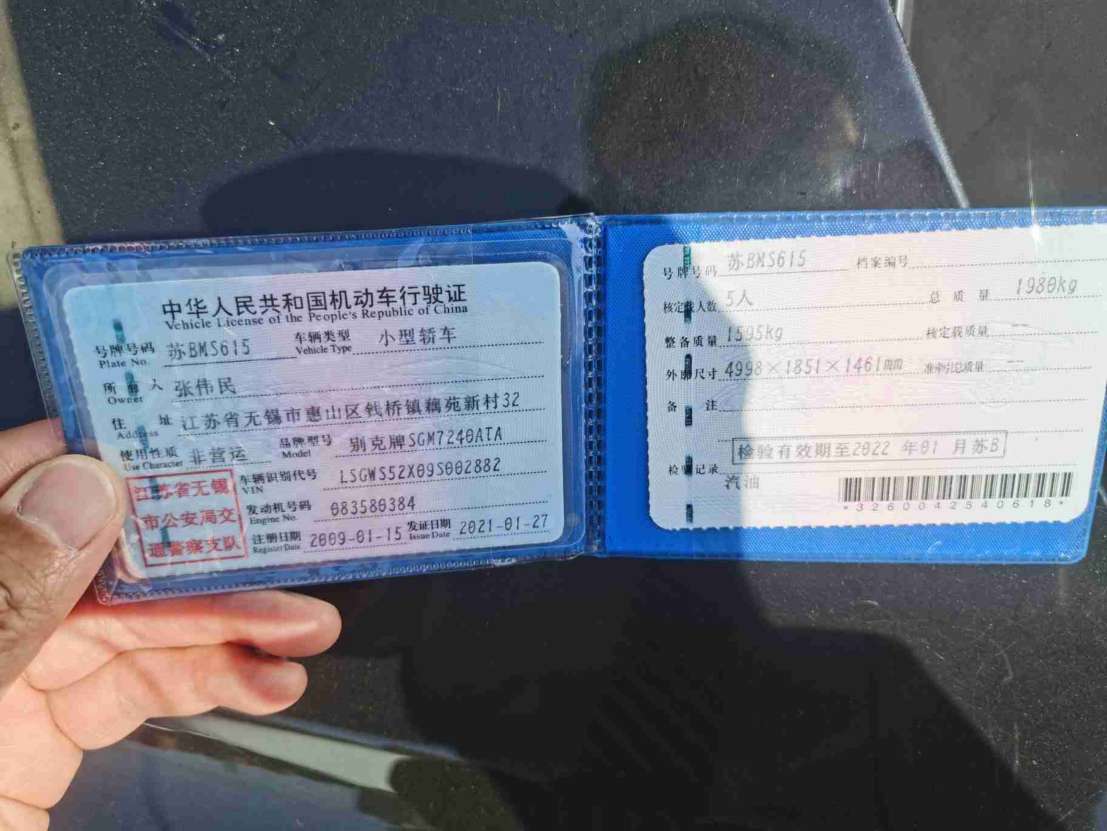 中华人民共和国机动车行驶证
Vehicle License of the People's Republic of China
号牌号码 苏BMS615 车辆类型 小型轿车
Plate No. Vehicle Type
所有人 张伟民
Owner
住址 江苏省无锡市惠山区钱桥镇藕苑新村32
Address
使用性质 非营运 品牌型号 别克牌SGM7240ATA
Use Character Model
车辆识别代号 LSGWS52X09S002882
VIN
发动机号码 083580384
Engine No.
注册日期 2009-01-15 发证日期 2021-01-27
Register Date Issue Date
江苏省无锡
市公安局交
通警察支队
号牌号码 苏BMS615 档案编号
核定载人数 5人 总质量 1980kg
整备质量 1595kg 核定载质量
外廓尺寸 4998×1851×1461 准牵引总质量
备注
检验有效期至2022年01月苏B
检验记录
汽油
*3260042540618*